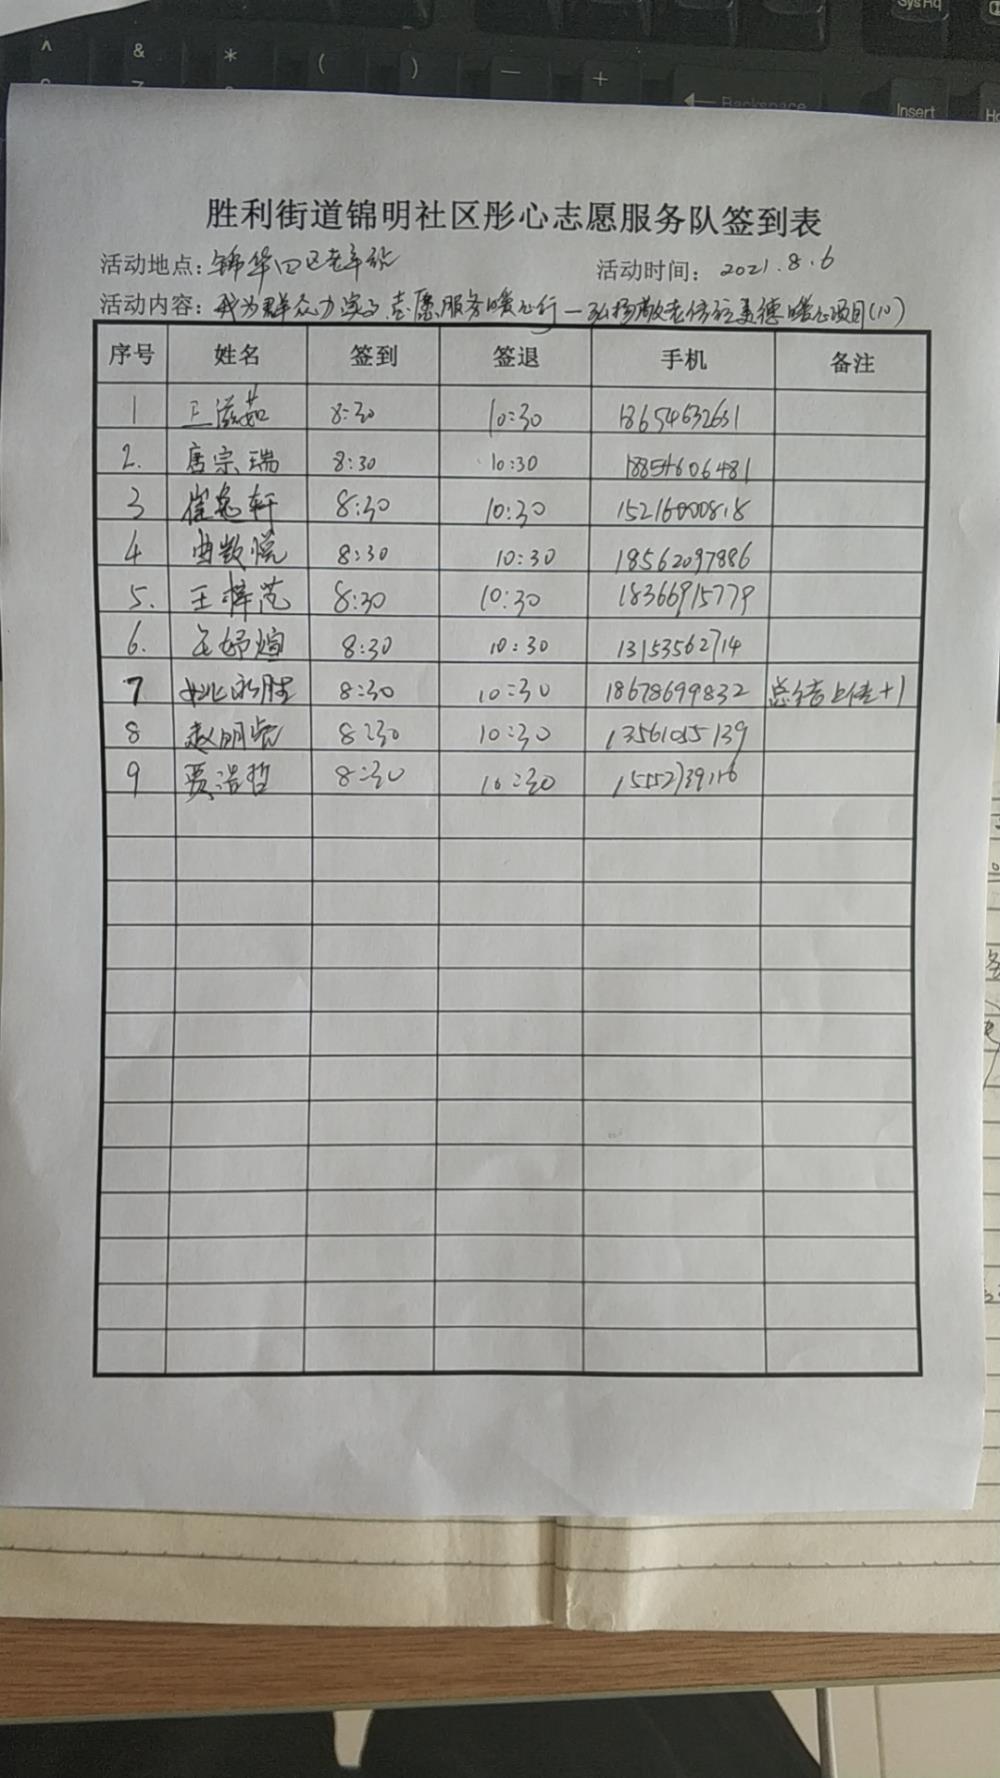 胜利街道锦明社区彤心志愿服务队签到表
活动地点：锦华四区老年公 活动时间：2021.8.6
活动内容：我为群众办实事 志愿服务暖心行—弘扬敬老传统美德暖心项目(10)
序号 姓名 签到 签退 手机 备注
1 王滋茹 8:30 10:30 18654632631
2. 唐宗瑞 8:30 10:30 18854606481
3 崔 轩 8:30 10:30 15216000818
4 曲散悦 8:30 10:30 18562097886
5. 王梓范 8:30 10:30 18366915779
6. 王妤煊 8:30 10:30 13153562714
7 姚永胜 8:30 10:30 18678699832 总结上传+1
8 赵明 8:30 10:30 13561055139
9 贾浩哲 8:30 10:30
SysRq
^
&
*
(
)
—
+
Backspace
Insert